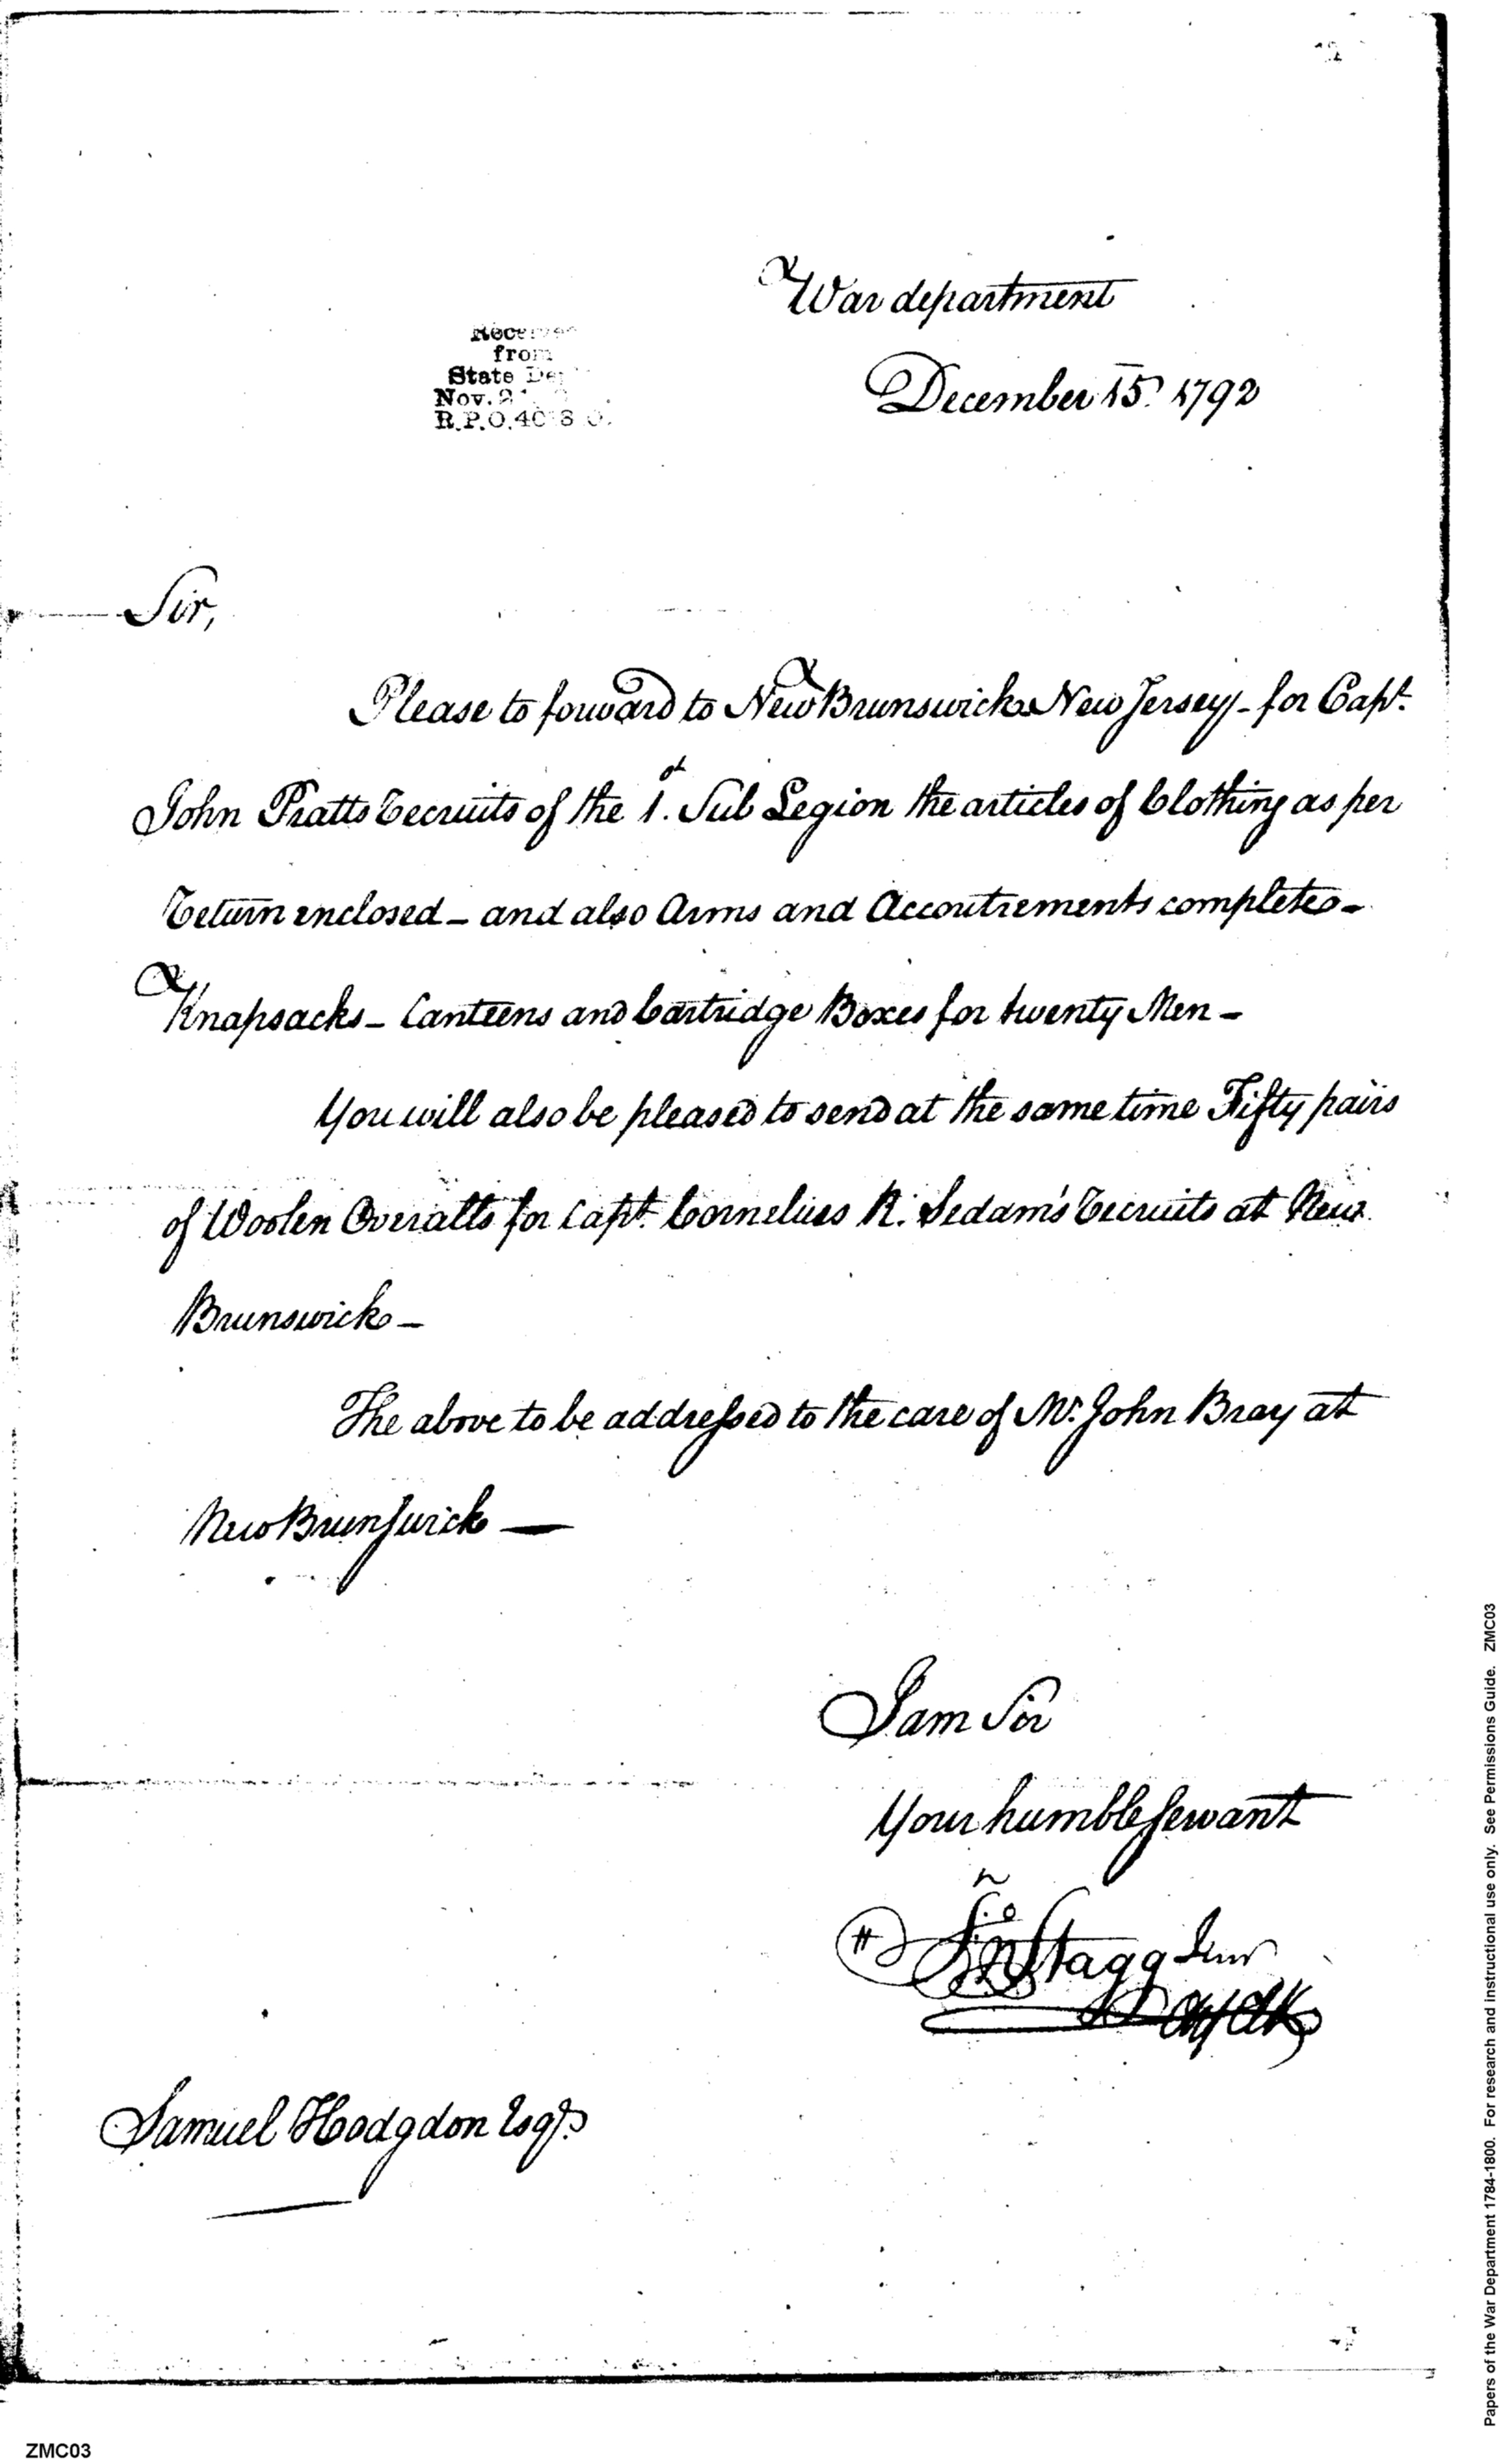 War department
December 15. 1792
Received
from
State De
Nov. 2
R.P.O. 40
Sir,
Please to forward to New Brunswick New Jersey - for Capt.
John Pratts recruits of the 1.st Sub Legion the articles of Clothing as per
return enclosed - and also Arms and Accoutrements complete -
Knapsacks - Canteens and Cartridge Boxes for twenty Men -
You will also be pleased to send at the same time Fifty pairs
of Woolen Overalls for Capt. Cornelius R. Sedam's recruits at New
Brunswick -
The above to be addressed to the care of Mr. John Bray at
New Brunswick —
I am Sir
Your humble servant
Jno Stagg Junr
Samuel Hodgdon Esqr.
Papers of the War Department 1784-1800. For research and instructional use only. See Permissions Guide. ZMC03
ZMC03